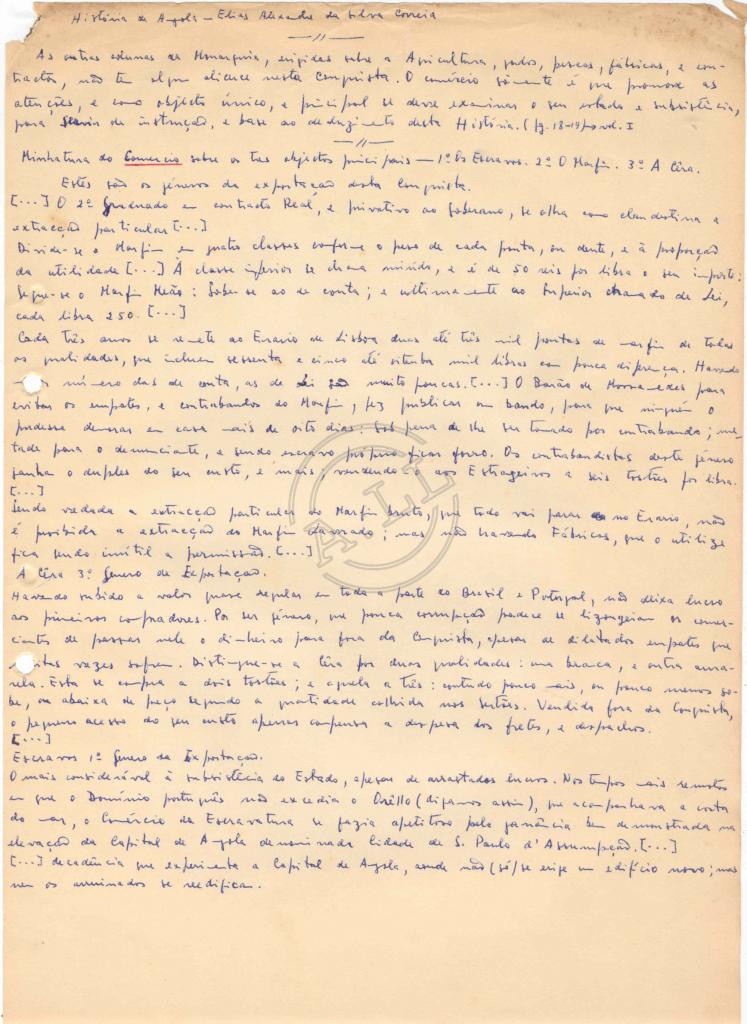 História de Angola — Elias Alexandre da Silva Correia
— // —
As outras colunas da Monarquia, erigidas sobre a Agricultura, gados, pescas, fábricas, e con-
tractos, não tem algum alicerce nesta Conquista. O comércio sòmente é que promove as
atenções, e como objecto único, e principal se deve examinar o seu estado e subsistência,
para servir de instrução, e base ao deduzimento desta História. (pg. 18-19) vol. I
— // —
Minhatura do Comercio sobre os tres objectos principais — 1º Os Escravos. 2º O Marfim. 3º A Cêra.
Estes são os géneros da exportação desta Conquista.
[...] O 2º Graduado em contracto Real, e privativo ao Soberano, se olha como clandestina a
extracção particular [...]
Divide-se o Marfim em quatro classes conforme o peso de cada ponta, ou dente, e à proporção
da utilidade [...] A classe inferior se chama miúdo, e é de 50 reis por libra o seu importe:
Segue-se o Marfim Meão: Sobe-se ao de conta; e ultimamente ao Superior chamado de Lei,
cada libra 250. [...]
Cada três anos se remete ao Erario de Lisboa duas até três mil pontas de marfim de todas
as qualidades, que incluem sessenta e cinco até oitenta mil libras com pouca diferença. Havendo
número das de conta, as de Lei são muito poucas. [...] O Barão de Mossamedes para
evitar os empates, e contrabandos do Marfim, fez publicar um bando, para que ninguém o
pudesse demorar em casa mais de oito dias: sob pena de lhe ser tomado por contrabando; me-
tade para o denunciante, e sendo escravo próprio ficar forro. Os contrabandistas deste género
ganham o duplo do seu custo, e mais; vendendo-o aos Estrageiros a seis tostões por libra.
[...]
Sendo vedada a extracção particular do Marfim bruto, que todo vai parar no Erario, não
é proibida a extracção do Marfim lavrado; mas não havendo Fábricas, que o utilize
fica sendo inútil a permissão. [...]
A Cêra 3º Genero de Exportação.
Havendo subido a valor quase regular em toda a parte do Brasil e Portugal, não deixa lucro
aos primeiros compradores. Por ser género, que pouca corrupção padece se lizongeiam os comer-
ciantes de passar nele o dinheiro para fora da Conquista, apesar de dilatados empates que
muitas vezes sofrem. Distingue-se a Cêra por duas qualidades: uma branca, e outra ama-
rela. Esta se compra a dois tostões; e aquela a três: contudo pouco mais, ou pouco menos so-
be, ou abaixa de preço segundo a quantidade colhida nos sertões. Vendida fora da Conquista,
o pequeno acesso do seu custo apenas compensa a despesa dos fretes, e despachos.
[...]
Escravos 1º Genero da Exportação.
O mais considerável à subsistêcia do Estado, apesar de arrastados lucros. Nos tempos mais remotos
em que o Domínio português não excedia o Orêllo (digamos assim), que acompanhava a costa
do mar, o Comércio da Escravatura se fazia apetitoso pela ganância bem demonstrada na
elevação da Capital de Angola denominada Cidade de S. Paulo d'Assumpção. [...]
[...] decadência que experimenta a Capital de Angola, aonde não (só) se erige um edifício novo; mas
nem os arruinados se reedificam.
ALL